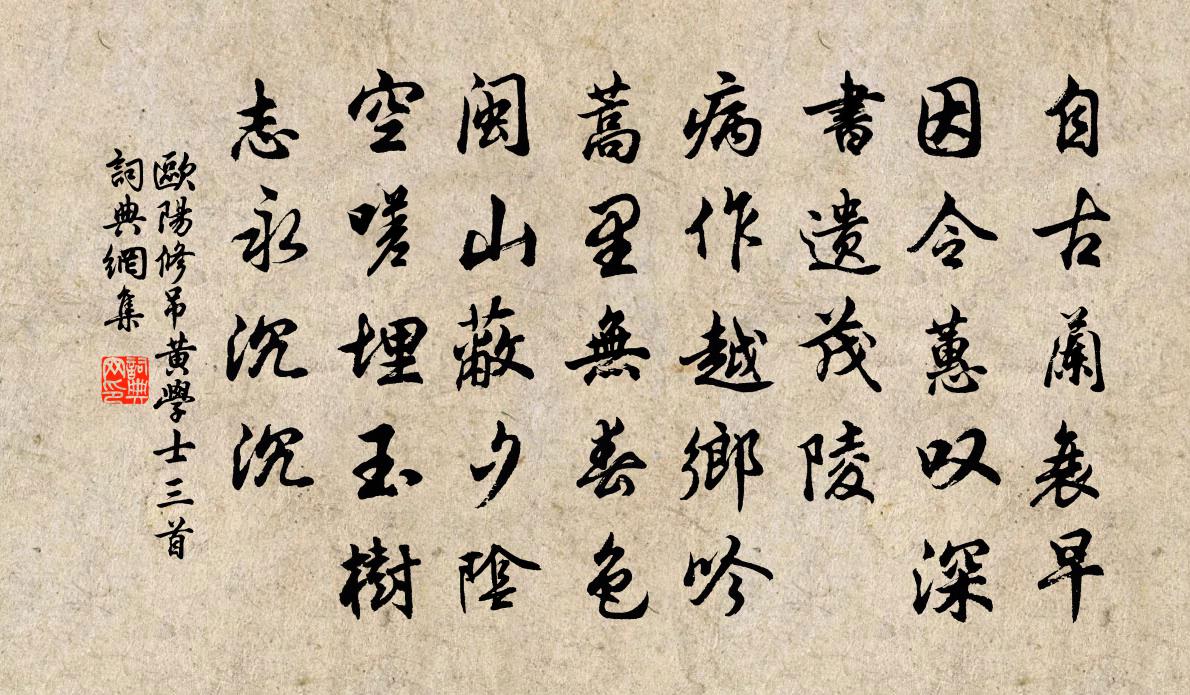 自古蘭衰早
因令蕙叹深
書遺茂陵
病作越鄉吟
蒿里無春色
閩山蔽夕陰
空嗟埋玉樹
志永沉沉
歐陽修吊黄學士三首
詞典網集
詞典
网印